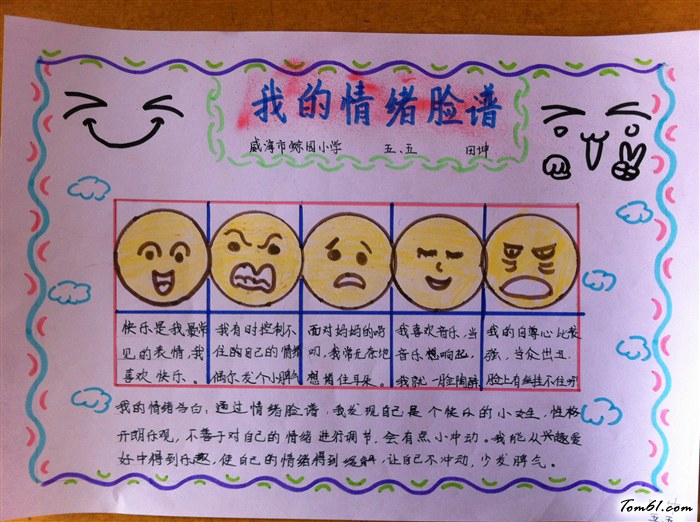 我的情绪脸谱
威海市鲸园小学 五、五 田坤
快乐是我最常
见的表情,我
喜欢快乐。
我有时控制不
住的自己的情绪
偶尔发个小脾气
面对妈妈的唠
叨,我常无奈地
想堵住耳朵。
我喜欢音乐,当
音乐想响起,
我就一脸陶醉
我的自尊心比较
强,当众出丑,
脸上有些挂不住呀
我的情绪告白:通过情绪脸谱,我发现自己是个快乐的小女生,性格
开朗乐观,不善于对自己的情绪进行调节,会有点小冲动。我能从兴趣爱
好中得到乐趣,使自己的情绪得到缓解,让自己不冲动,少发脾气。
Tom61.com
五五